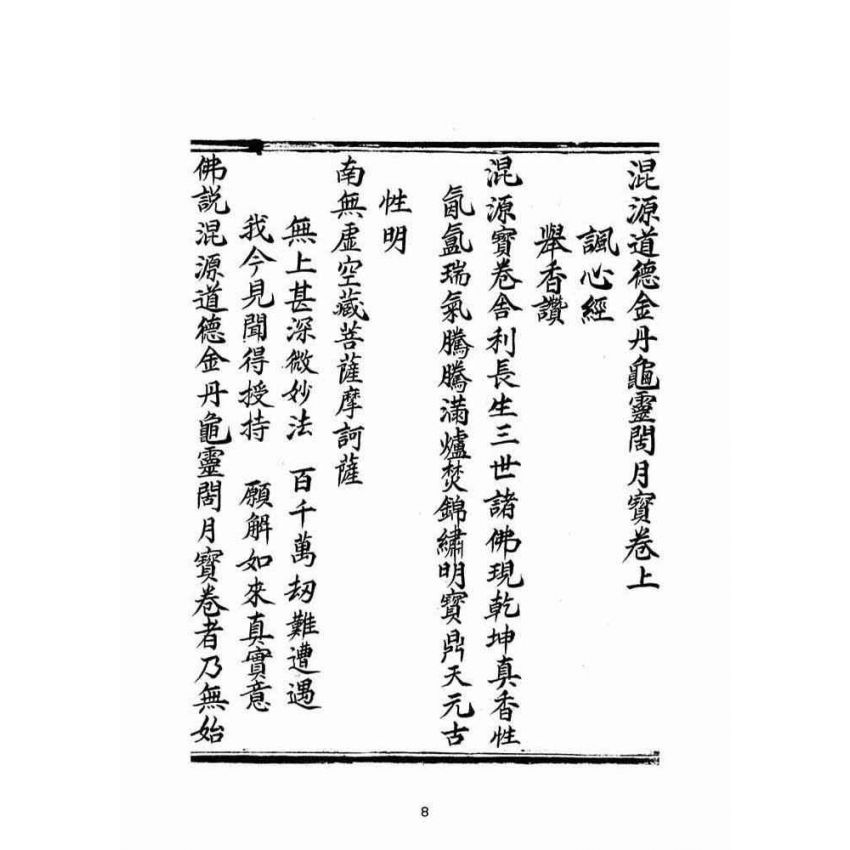 混源道德金丹龜靈閤月寳卷上
諷心經
舉香讚
混源寳卷舍利長生三世諸佛現乾坤真香性
氤氳瑞氣騰騰滿爐焚錦繡明寳鼎天元古
性明
南無虛空藏菩薩摩訶薩
無上甚深微妙法 百千萬刼難遭遇
我今見聞得授持 願解如來真實意
佛説混源道德金丹龜靈閤月寳卷者乃無始
8